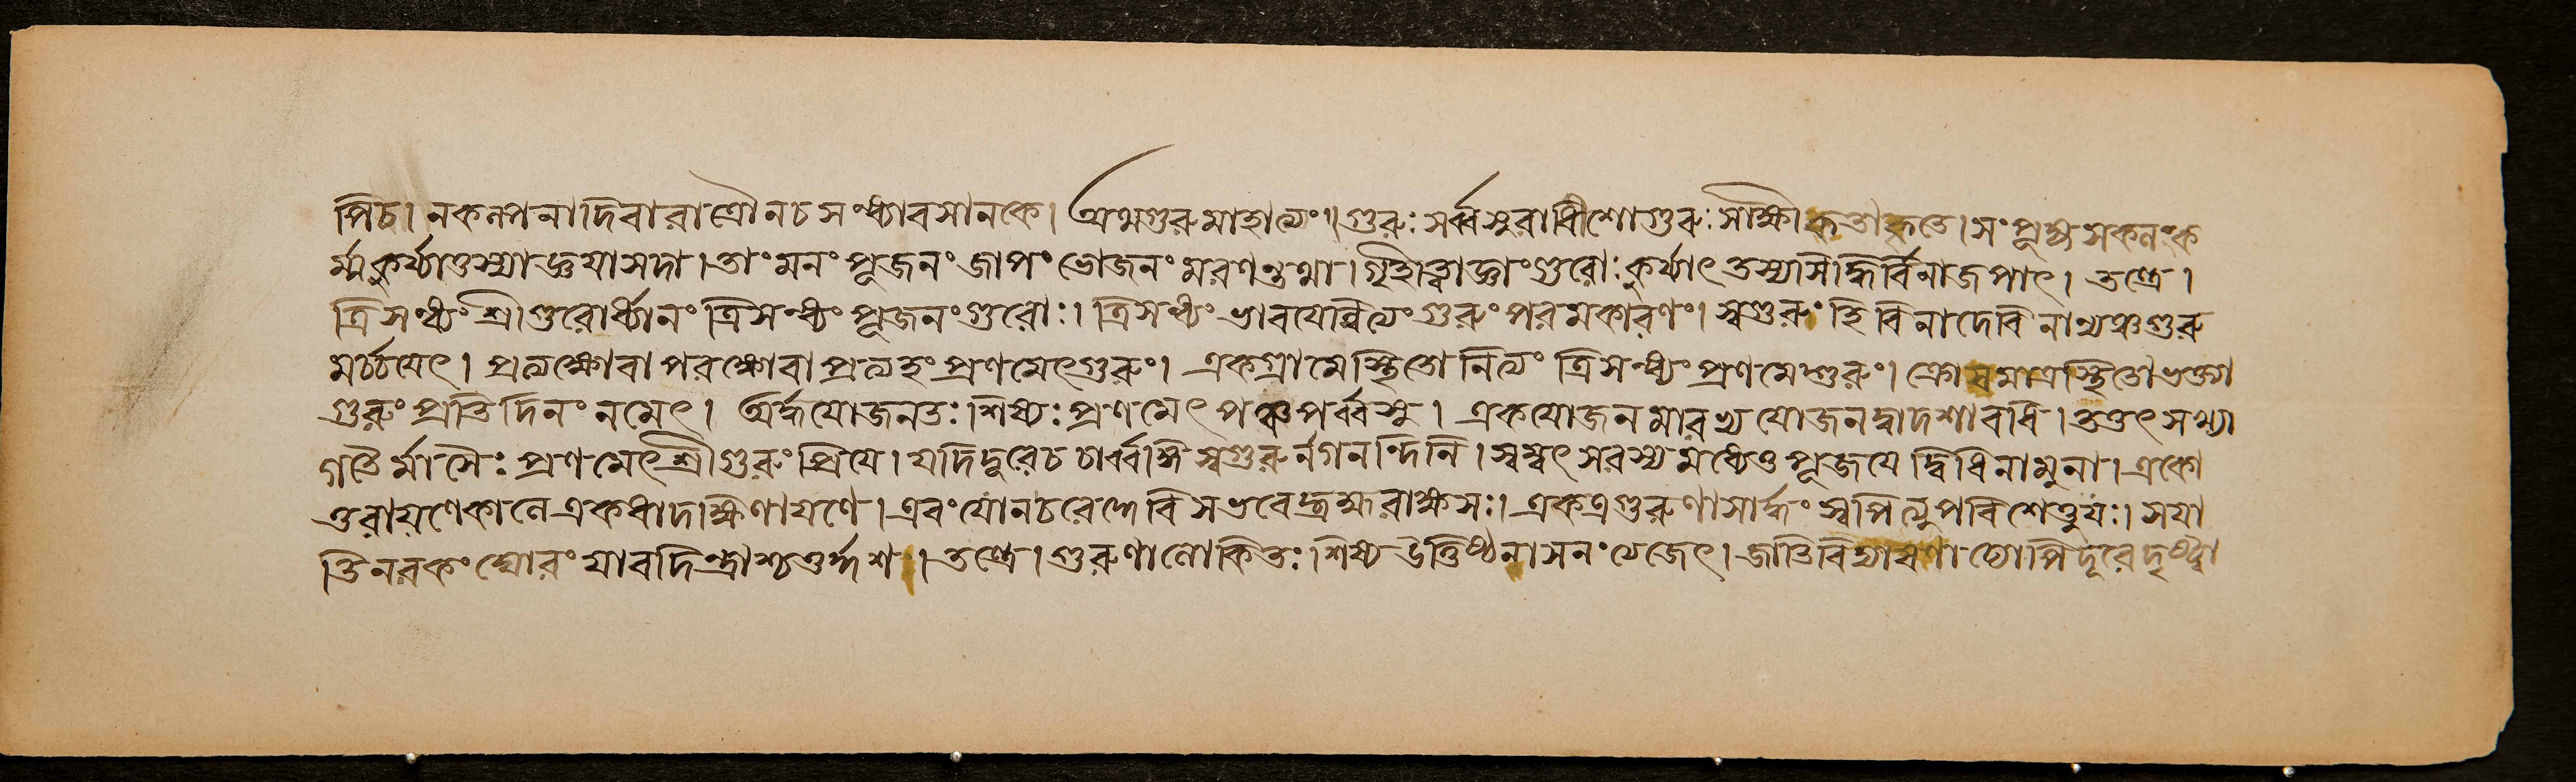 পিচ। নকনপনাদিবারাত্রৌনচসন্ধ্যাবসানকে। অথগুরুমাহাত্ম্যং॥ গুরুঃ সর্ব্বসুরাধীশোগুরুঃ সাক্ষীকৃতাকৃতে। সংপূজ্য সকলংক
র্ম্মকুর্য্যাত্তস্যাজ্ঞয়াসদা। তাং মনং পূজনং জাপং ভোজনং মরণন্তথা। গৃহীত্বাজ্ঞাংগুরোঃ কুর্য্যাৎ তস্যাসিদ্ধির্বিনাজপাৎ। তন্ত্রে।
ত্রিসন্ধ্যং শ্রীগুরোর্ধ্যানং ত্রিসন্ধ্যং পূজনংগুরোঃ। ত্রিসন্ধ্যং ভাবয়েন্নিত্যং গুরুং পরমকারণং। স্বগুরুং হি বিনাদেবি নান্যঞ্চগুরু
মর্চ্চয়েৎ। প্রত্যক্ষোবা পরক্ষোবা প্রত্যহং প্রণমেৎগুরুং। একগ্রামেস্থিতো নিত্যং ত্রিসন্ধ্যং প্রণমেদ্গুরুং। ক্রোসমাত্রস্থিতোভক্ত্যা
গুরুং প্রতিদিনং নমেৎ। অর্দ্ধযোজনতঃ শিষ্যঃ প্রণমেৎ পঞ্চপর্ব্বসু। একযোজনমারভ্য যোজনদ্বাদশাবধি। তত্তৎ সংখ্যা
গতৈর্মাসৈঃ প্রণমেৎশ্রীগুরুং প্রিয়ে। যদিদুরেচ চার্ব্বঙ্গি স্বগুরুর্নগনন্দিনি। স্বম্বৎসরস্যমধ্যেতু পূজয়েদ্বিধিনামুনা। একো
ত্তরায়ণেকালে একধাদক্ষিণায়ণে। এবং যোনচরেদ্দেবি সভবেদ্ব্রহ্মরাক্ষসঃ। একত্রগুরুণাসার্দ্ধং স্বপিত্যুপবিশেত্তুযঃ। সযা
তিনরকং ঘোরং যাবদিন্দ্রাশ্চতুর্দ্দশ। তন্ত্রে। গুরুণালোকিতঃ শিষ্য উত্তিষ্ঠেনাসনং ত্যেজেৎ। জাতিবিদ্যাধনাঢ্যোপি দূরেদৃষ্ট্বা